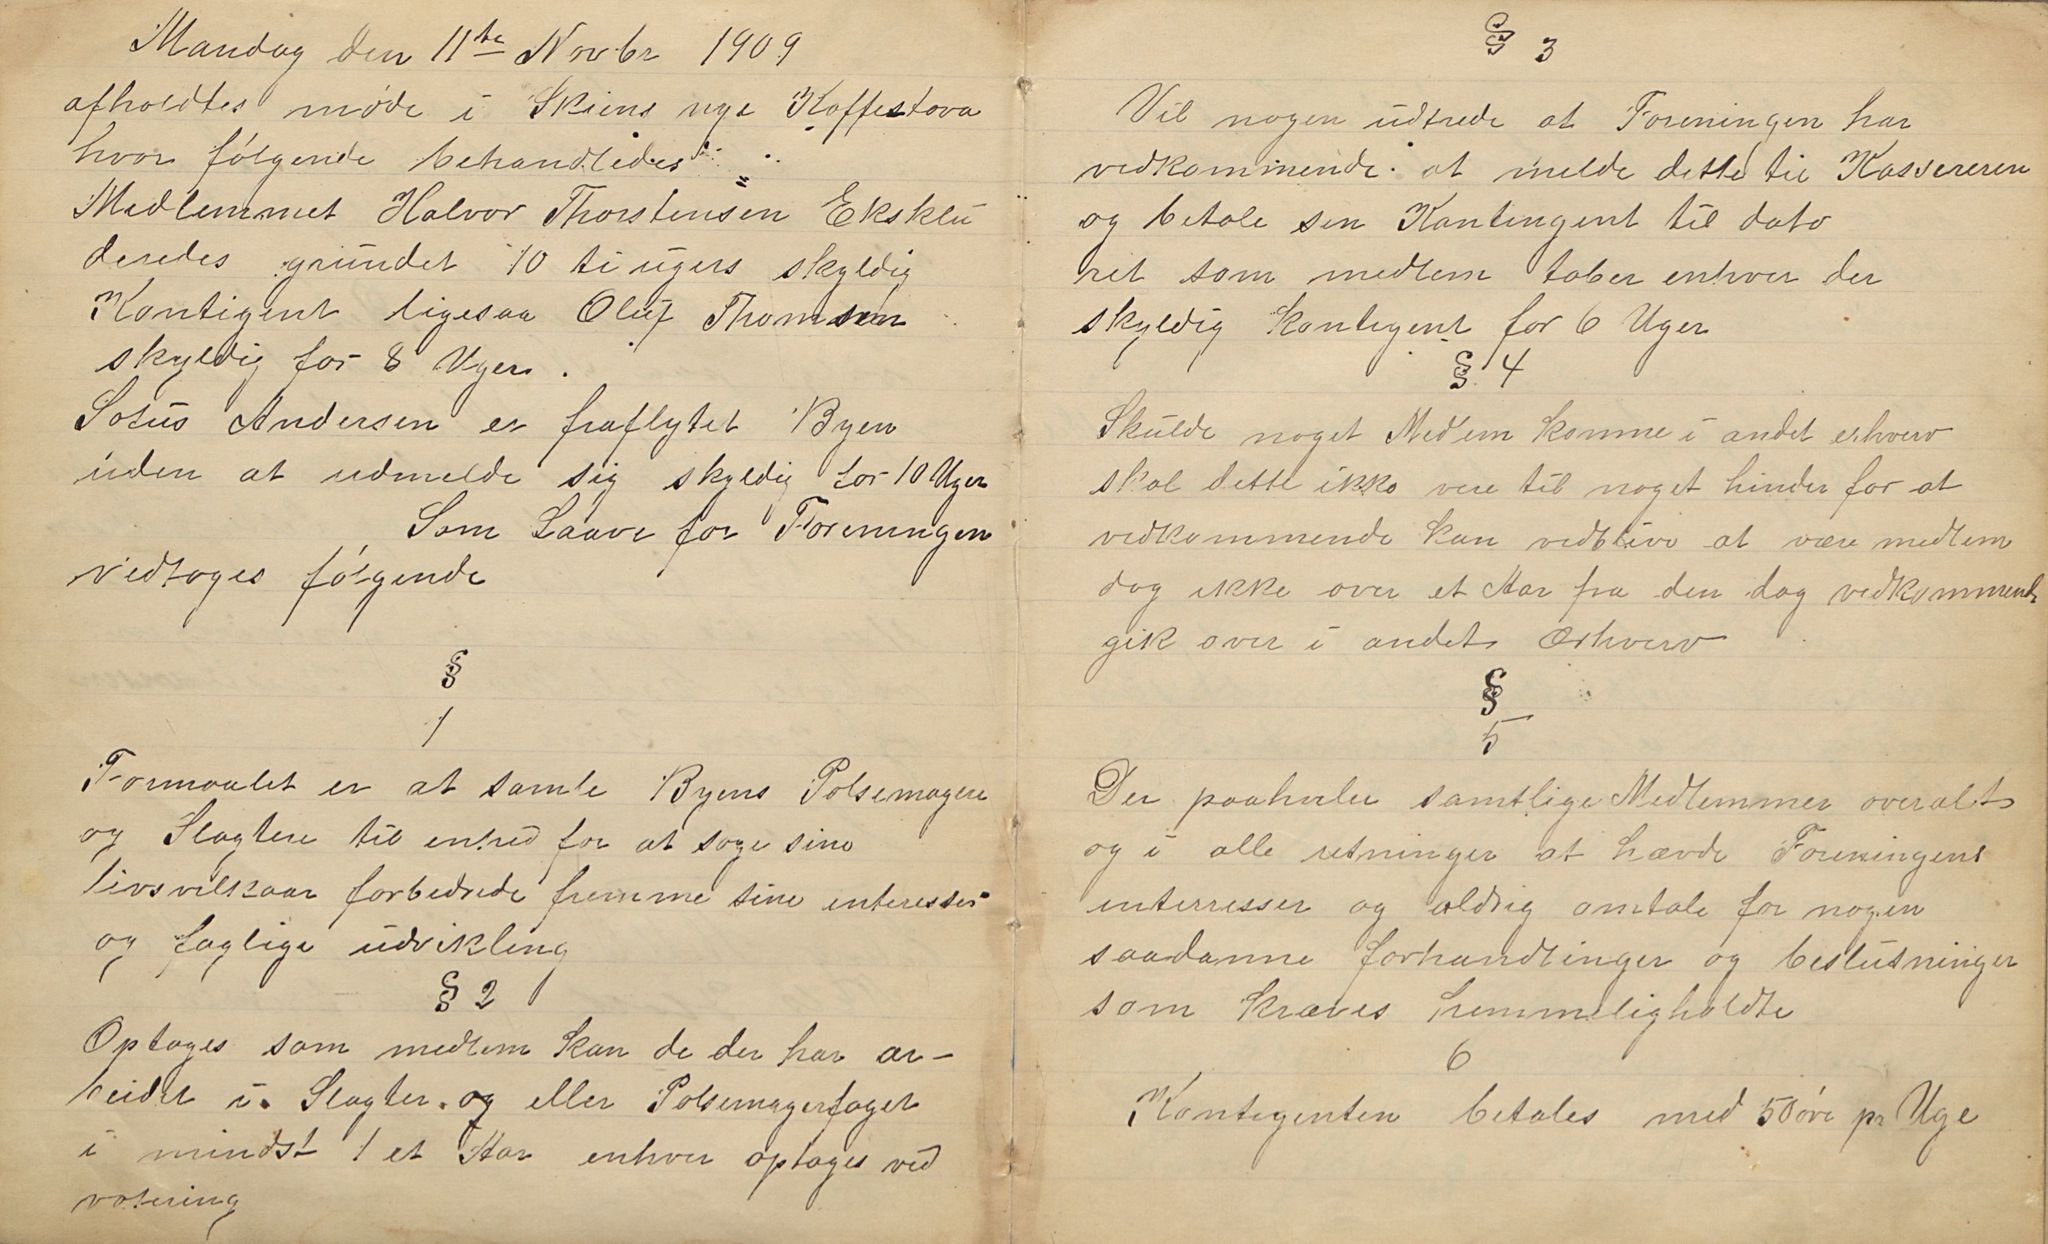 Mandag den 11te Novbr 1909
afholdtes møde i Skiens nye Kaffestova
hvor følgende behandledes
Medlemmet Halvor Thorstensen Eksklu
deredes grundet 10 ti ugers skyldig
Kontigent ligesaa Oluf Thomsen
skyldig for 8 Uger.
Sofus Andersen er fraflytet Byen
uden at udmelde sig skyldig for 10 Uger
Som Laave for Foreningen
vedtoges følgende
§
1
Formaalet er at samle Byens Polsemagere
og Slagtere til enhed for at soge sine
livsvilkaar forbedrede fremme sine enteresser
og faglige udvikling
§ 2
Optages som medlem kan de der har ar-
beidet i Slagter og eller Polsemagerfaget
i mindst 1 et Aar enhver optages ved
votering
§ 3
Vil nogen udtrede at Foreningen har
vedkommende at melde dette til Kassereren
og betale sin Kontingent til dato
ret som medlem taber enhver der
skyldig kontigent for 6 Uger
§ 4
Skulde noget Medlem komme i andet erhverv
skal dette ikke vere til noget hinder for at
vedkommende kan vedblive at være medlem
dog ikke over et Aar fra den dag vedkommende
gik over i andet Ærhverv
§
5
Der paahviler samtlige Medlemmer overalt
og i alle retninger at hævde Foreningens
interresser og aldrig omtale for nogen
saadanne forhandlinger og beslutninger
som kræves hemmeligholdte
6
Kontigenten betales med 50 øre pr Uge